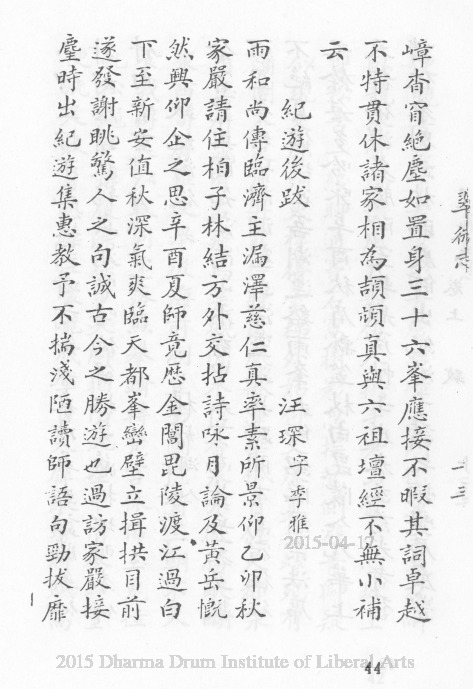 嶂杳窅絕塵如置身三十六峯應接不暇其詞卓越
不特貫休諸家相為頡頏真與六祖壇經不無小補
云
紀遊後跋 汪琛字季雅
雨和尚傳臨濟主漏澤慈仁真率素所景仰乙卯秋
家嚴請住柏子林結方外交拈詩咏月論及黃岳慨
然興仰企之思辛酉夏師竟歷金閶毘陵渡江過白
下至新安值秋深氣爽臨天都峯巒壁立揖拱目前
遂發謝眺驚人之句誠古今之勝遊也過訪家嚴接
麈時出紀遊集惠教予不揣淺陋讀師語句勁拔靡
卷上
一三
2015-04-17
2015 Dharma Drum Institute of Liberal Arts
44